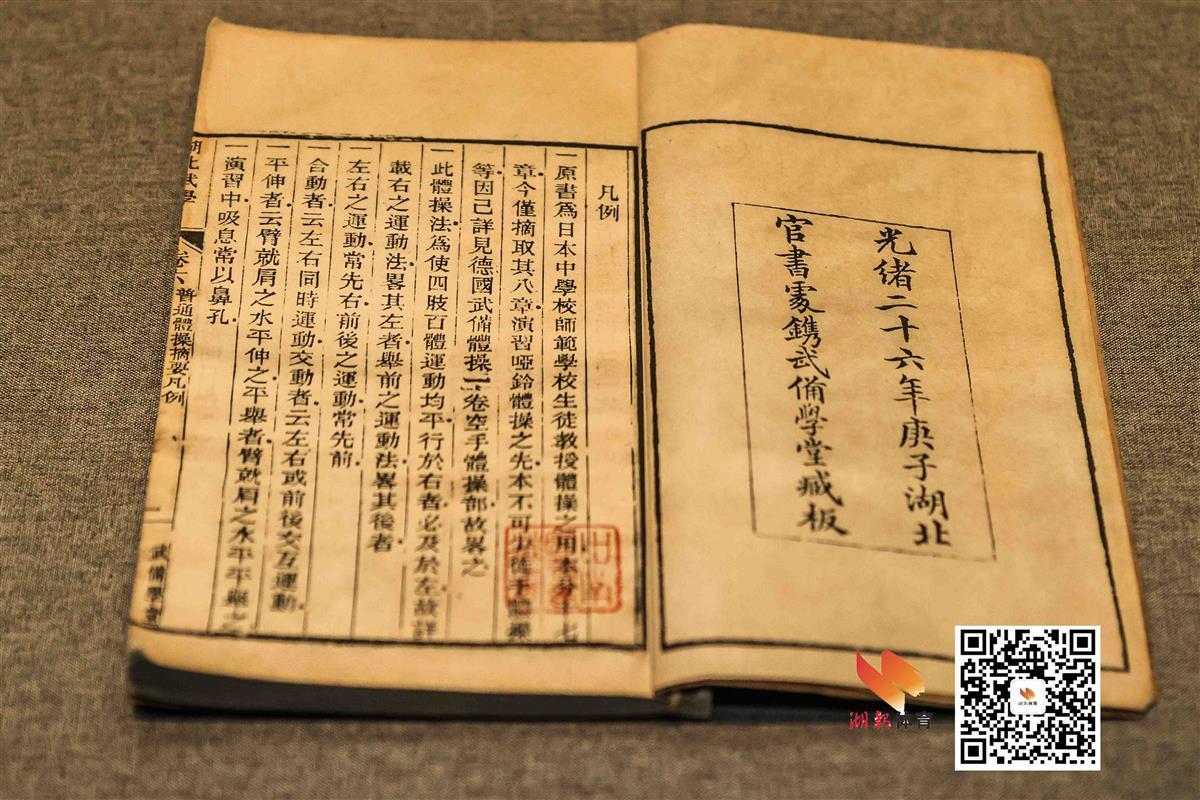 光緒二十六年庚子湖北
官書處鐫武備學堂臧板
凡例
一原書爲日本中學校師範學校生徒教授體操之用本分十七
章今僅摘取其八章演習啞鈴體操之先本不可少徒手體操
等因已詳見德國武備體操一卷空手體操部故畧之
一此體操法爲使四肢百體運動均平行於右者必及於左故詳
載右之運動法畧其左者舉前之運動法畧其後者
一左右之運動常先右前後之運動常先前
一合動者云左右同時運動交動者云左右或前後交互運動
一平伸者云臂就肩之水平伸之平舉者臂就肩之水平平舉之
一演習中吸息常以鼻孔
湖北武學
卷六 普通體操摘要凡例
一
武備學堂
湖報体育